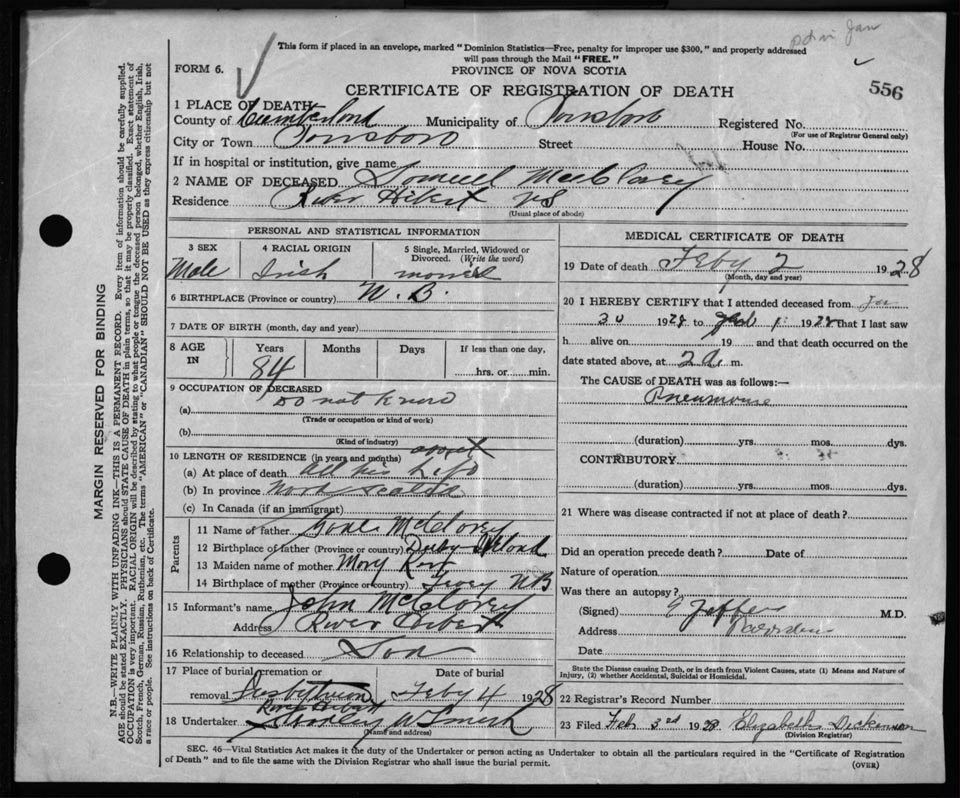 This form if placed in an envelope, marked "Dominion Statistics—Free, penalty for improper use $300," and properly addressed
will pass through the Mail "FREE."
FORM 6.
PROVINCE OF NOVA SCOTIA
CERTIFICATE OF REGISTRATION OF DEATH
556
1 PLACE OF DEATH
County of Cumberland Municipality of Registered No.
(For use of Registrar General only)
City or Town Street House No.
If in hospital or institution, give name
2 NAME OF DECEASED Samuel
Residence River Hibert NS
(Usual place of abode)
PERSONAL AND STATISTICAL INFORMATION
3 SEX 4 RACIAL ORIGIN 5 Single, Married, Widowed or Divorced. (Write the word)
Male Irish
6 BIRTHPLACE (Province or country) N.B.
7 DATE OF BIRTH (month, day and year)
8 AGE IN Years Months Days If less than one day,
84 hrs. or min.
9 OCCUPATION OF DECEASED
(a) Do not know
(Trade or occupation or kind of work)
(b)
(Kind of industry)
10 LENGTH OF RESIDENCE (in years and months) about
(a) At place of death all his Life
(b) In province Nova Scotia
(c) In Canada (if an immigrant)
Parents
11 Name of father
12 Birthplace of father (Province or country)
13 Maiden name of mother Mary
14 Birthplace of mother (Province or country) NB
15 Informant's name John
Address River Hebert
16 Relationship to deceased Son
17 Place of burial, cremation or removal Date of burial
Presbyterian Feby 4 1928
River Hebert
18 Undertaker Stanley W Smith
(Name and address)
MEDICAL CERTIFICATE OF DEATH
19 Date of death Feby 2 1928
(Month, day and year)
20 I HEREBY CERTIFY that I attended deceased from Jan
30 1928 to Feb 1 1928 that I last saw
h alive on 19 and that death occurred on the
date stated above, at 2 a. m.
The CAUSE OF DEATH was as follows:—
Pneumonia
(duration) yrs. mos. dys.
CONTRIBUTORY
(duration) yrs. mos. dys.
21 Where was disease contracted if not at place of death?
Did an operation precede death? Date of
Nature of operation
Was there an autopsy?
(Signed) M.D.
Address
Date
State the Disease causing Death, or in death from Violent Causes, state (1) Means and Nature of
Injury, (2) whether Accidental, Suicidal or Homicidal.
22 Registrar's Record Number
23 Filed Feb 3rd 1928 Elizabeth Dickinson
(Division Registrar)
SEC. 46—Vital Statistics Act makes it the duty of the Undertaker or person acting as Undertaker to obtain all the particulars required in the "Certificate of Registration
of Death" and to file the same with the Division Registrar who shall issue the burial permit.
(OVER)
MARGIN RESERVED FOR BINDING
N.B.—WRITE PLAINLY WITH UNFADING INK—THIS IS A PERMANENT RECORD. Every item of information should be carefully supplied.
AGE should be stated EXACTLY. PHYSICIANS should STATE CAUSE OF DEATH in plain terms, so that it may be properly classified. Exact statement of
OCCUPATION is very important. RACIAL ORIGIN will be described by stating to what people or tongue the deceased person belonged, whether English, Irish,
Scotch, French, German, Russian, Ruthenian, etc. The terms "AMERICAN" or "CANADIAN" SHOULD NOT BE USED as they express citizenship but not
a race or people. See instructions on back of Certificate.